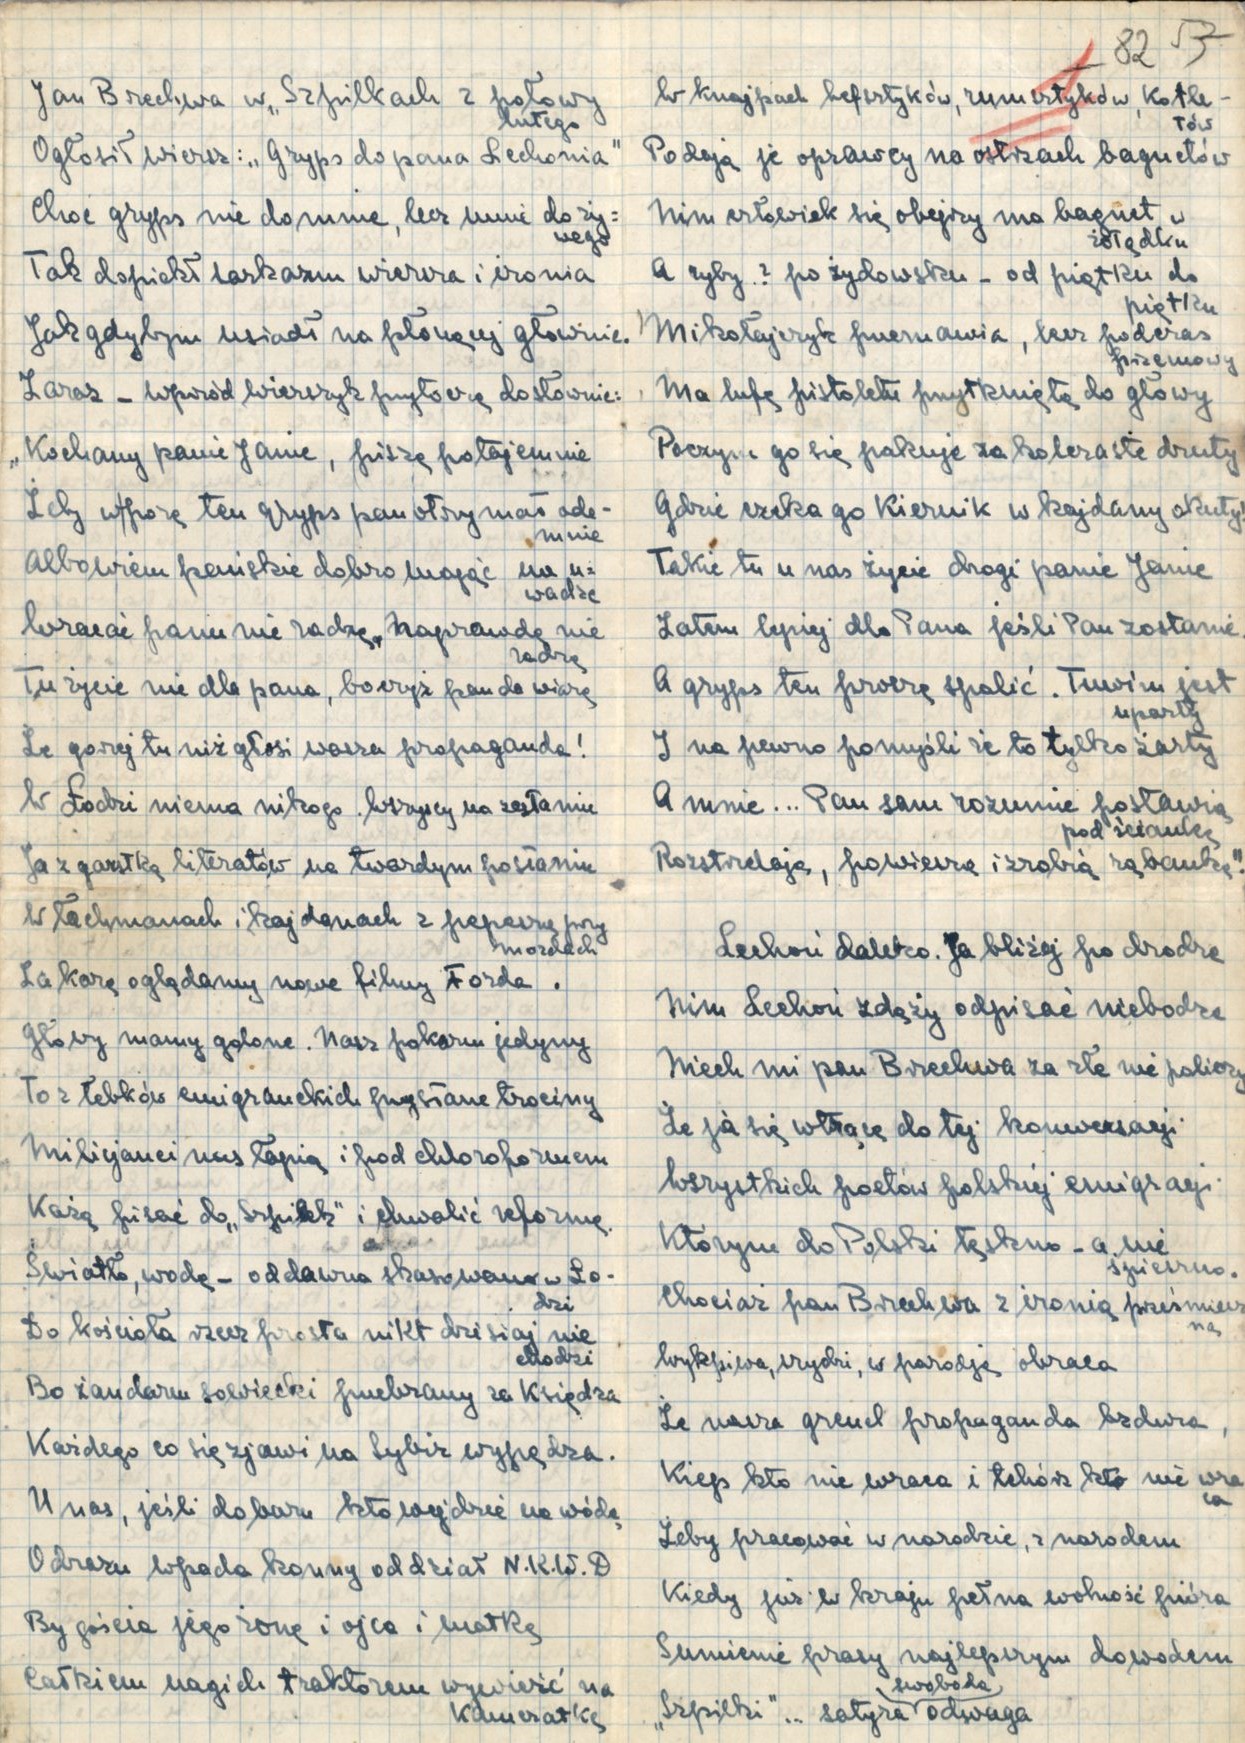 82 53
Jan Brzechwa w „Szpilkach z połowy
lutego
Ogłosił wiersz: „Gryps do pana Lechonia"
Choć gryps nie do mnie, lecz mnie do ży=
wego
Tak dopiekł sarkazm wiersza i ironia
Jak gdybym usiadł na płonącej głownie.
Zaraz – wprzód wierszyk przytoczę dosłownie:
„Kochany panie Janie, piszę potajemnie
Żeby w porę ten gryps pan otrzymał ode-
mnie
Albowiem pańskie dobro mając na u=
wadze
Wracać panu nie radzę, Naprawdę nie
radzę
Tu życie nie dla pana, bo czyż pan da wiarę
Że gorzej tu niż głosi wasza propaganda!
W Łodzi niema nikogo. Wszyscy na zesłaniu
Ja z garstką literatów na twardym posłaniu
W łachmanach i kajdanach z pepeszą przy
mordach
Za karę oglądamy nowe filmy Forda.
Głowy mamy golone. Nasz pokarm jedyny
To z łebków emigranckich przysłane trociny
Milicjanci nas łapią i pod chloroformem
Każą pisać do „Szpilek" i chwalić reformę.
Światło, wodę – oddawna skasowano w Ło-
dzi
Do kościoła rzecz prosta nikt dzisiaj nie
chodzi
Bo żandarm sowiecki przebrany za Księdza
Każdego co się zjawi na Sybir wypędza.
U nas, jeśli do baru kto wejdzie na wódę
Odrazu wpada konny oddział N.K.W.D
By gościa jego żonę i ojca i matkę
Całkiem nagich traktorem wywieźć na
Kamczatkę
W knajpach befsztyków, rumsztyków, Kotle-
tów
Podają je oprawcy na ostrzach bagnetów
Nim człowiek się obejrzy ma bagnet w
żołądku
A ryby..? po żydowsku – od piątku do
piątku
Mikołajczyk przemawia, lecz podczas
przemowy
Ma lufę pistoletu przytkniętą do głowy
Poczym go się pakuje za kolczaste druty
Gdzie czeka go Kiernik w kajdany okuty!
Takie tu u nas życie drogi panie Janie
Zatem lepiej dla Pana jeśli Pan zostanie.
A gryps ten proszę spalić. Tuwim jest
uparty
I na pewno pomyśli że to tylko żarty
A mnie... Pan sam rozumie postawią
pod ściankę
Rozstrzelają, powieszą i zrobią rąbankę".
Lechoń daleko. Ja bliżej po drodze
Nim Lechoń zdąży odpisać niebodze
Niech mi pan Brzechwa za złe nie policzy
Że ja się wtrącę do tej konwersacji
Wszystkich poetów polskiej emigracji
Którym do Polski tęskno – a nie
śpieszno.
Chociaż pan Brzechwa z ironią prześmiesz
ną
Wykpiwa, szydzi, w parodję obraca
Że nasza greuel propaganda bzdura,
Kiep kto nie wraca i tchórz kto nie wra
ca
Żeby pracować w narodzie, z narodem
Kiedy już w kraju pełna wolność pióra
Sumienie prasy najlepszym dowodem
swoboda
„Szpilki"... satyra odwaga